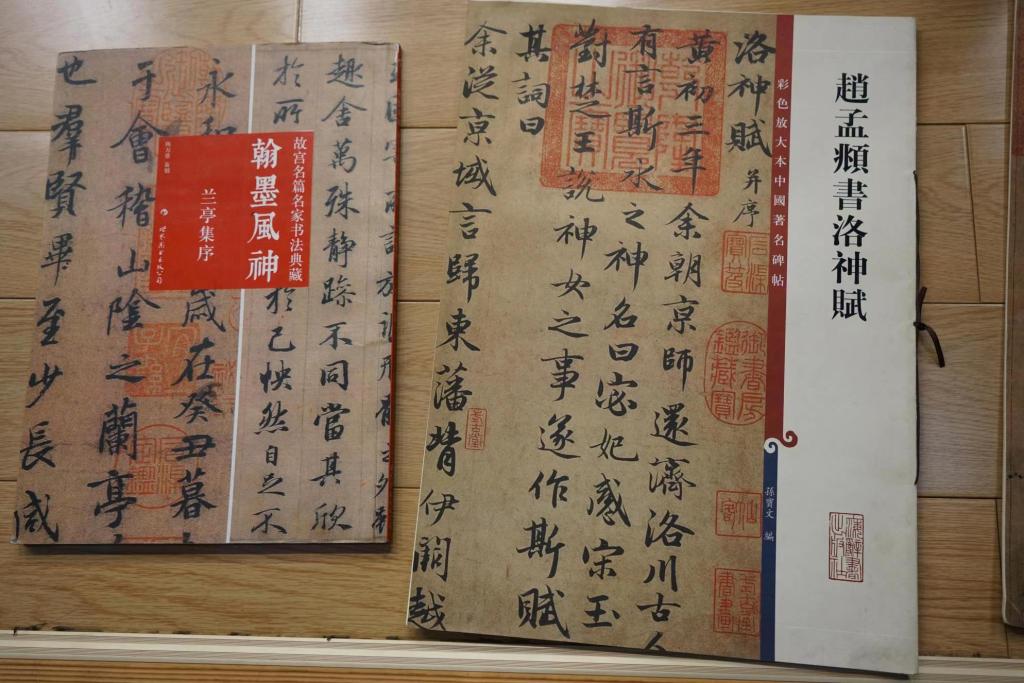 故宫名篇名家书法典藏
翰墨風神
兰亭集序
世界图书出版公司
趣舍萬殊静躁不同當其欣
於所
於己怏然自足不
永和
歲在癸丑暮
于會稽山陰之蘭亭
也羣賢畢至少長咸
趙孟頫書洛神賦
彩色放大本中國著名碑帖
孫寶文 編
上海辭書出版社
洛神賦 并序
黄初三年余朝京師還濟洛川古人
有言斯水之神名曰宓妃感宋玉
對楚王說神女之事遂作斯賦
其詞曰
余從京域言歸東藩背伊闕越
御書房鑑藏寶